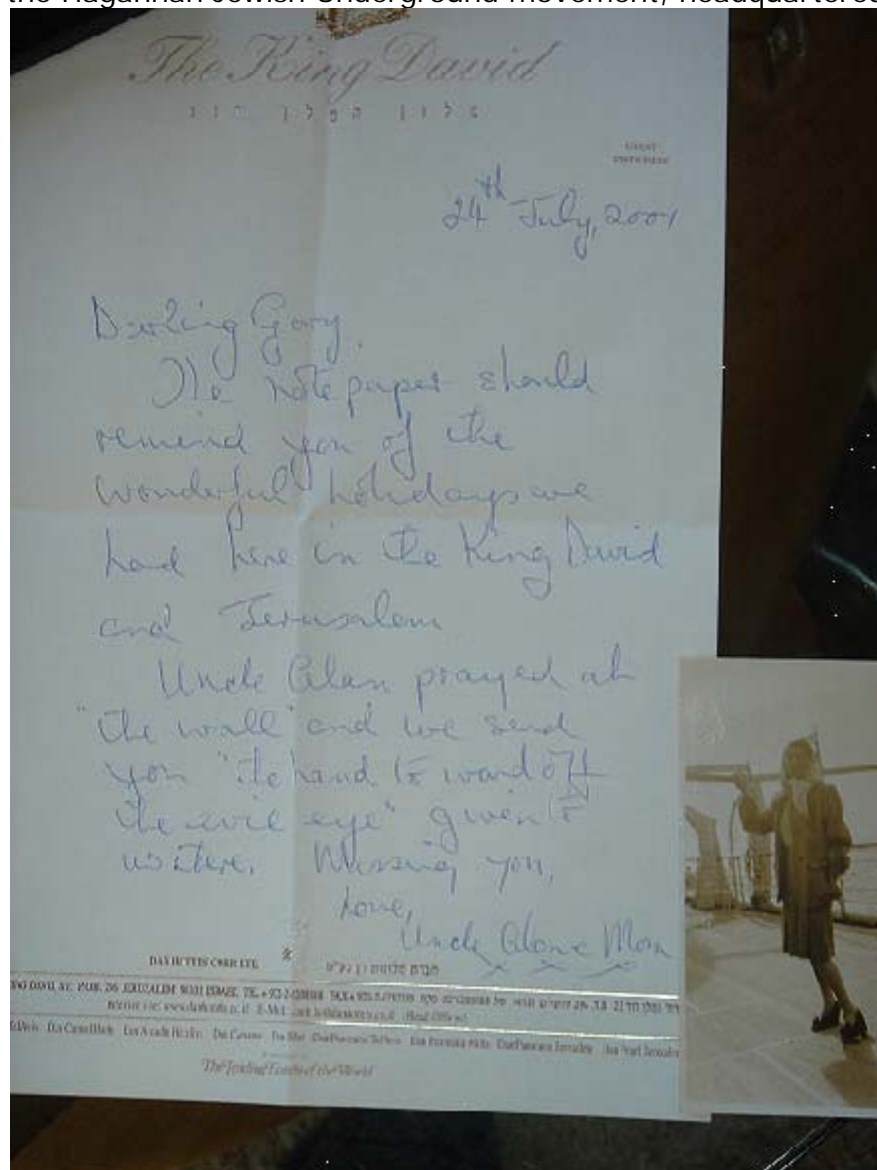 the Hagannah Jewish Underground movement, headquartered
The King David
מלון המלך דוד
GUEST
24th July, 2001
Darling Gary,
The notepaper should
remind you of the
wonderful holidays we
had here in the King David
and Jerusalem
Uncle Alan prayed at
"the wall" and we send
you "the hand to ward off
the evil eye" given to
us there. Missing you,
Love,
Uncle Alan & Mom
x x x
DAN HOTELS CORP. LTD.
KING DAVID ST. JERUSALEM ISRAEL TEL.
The Leading Hotels of the World